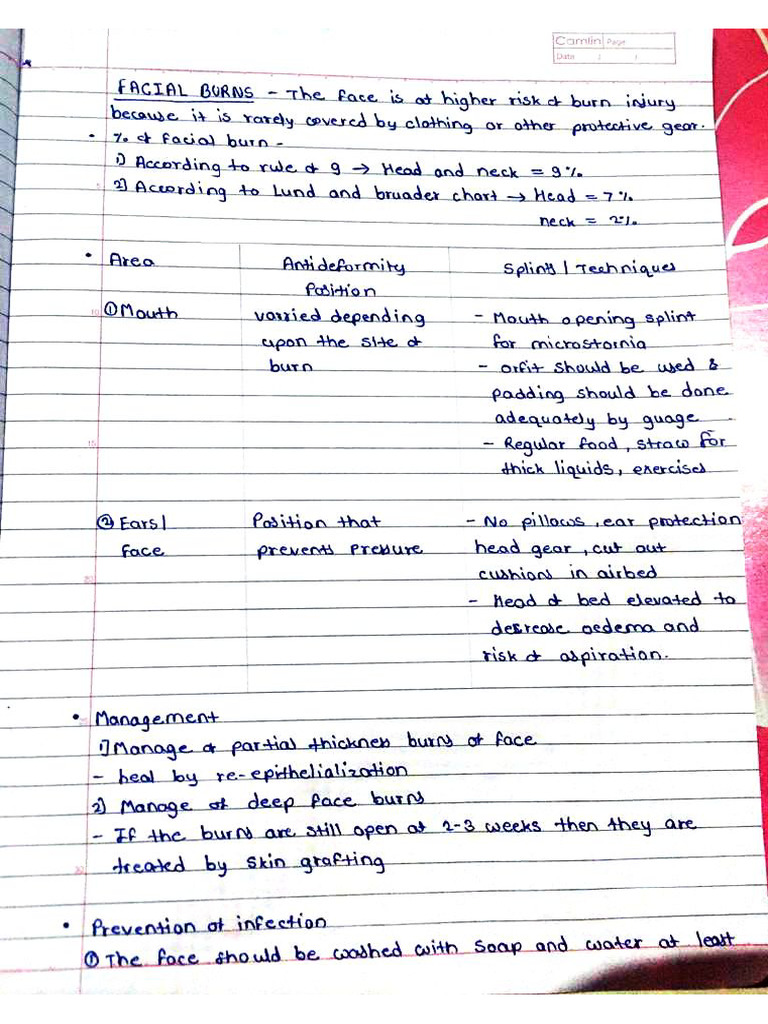 Camlin Page
Date : :
FACIAL BURNS - The face is at higher risk of burn injury
because it is rarely covered by clothing or other protective gear.
• % of facial burn -
1) According to rule of 9 → Head and neck = 9%
2) According to Lund and bruader chart → Head = 7%
neck = 2%
• Area Antideformity Splints / Techniques
Position
① Mouth varried depending - Mouth opening splint
upon the site of for microstomia
burn - orfit should be used &
padding should be done
adequately by guage
- Regular food, straw for
thick liquids, exercises
② Ears/ Position that - No pillows, ear protection
face prevents pressure head gear, cut out
cushions in airbed
- Head of bed elevated to
desrease oedema and
risk of aspiration.
• Management
1) Manage of partial thickness burns of face
- heal by re-epithelialization
2) Manage of deep face burns
- If the burns are still open at 2-3 weeks then they are
treated by skin grafting
• Prevention of infection
① The face should be washed with soap and water at least